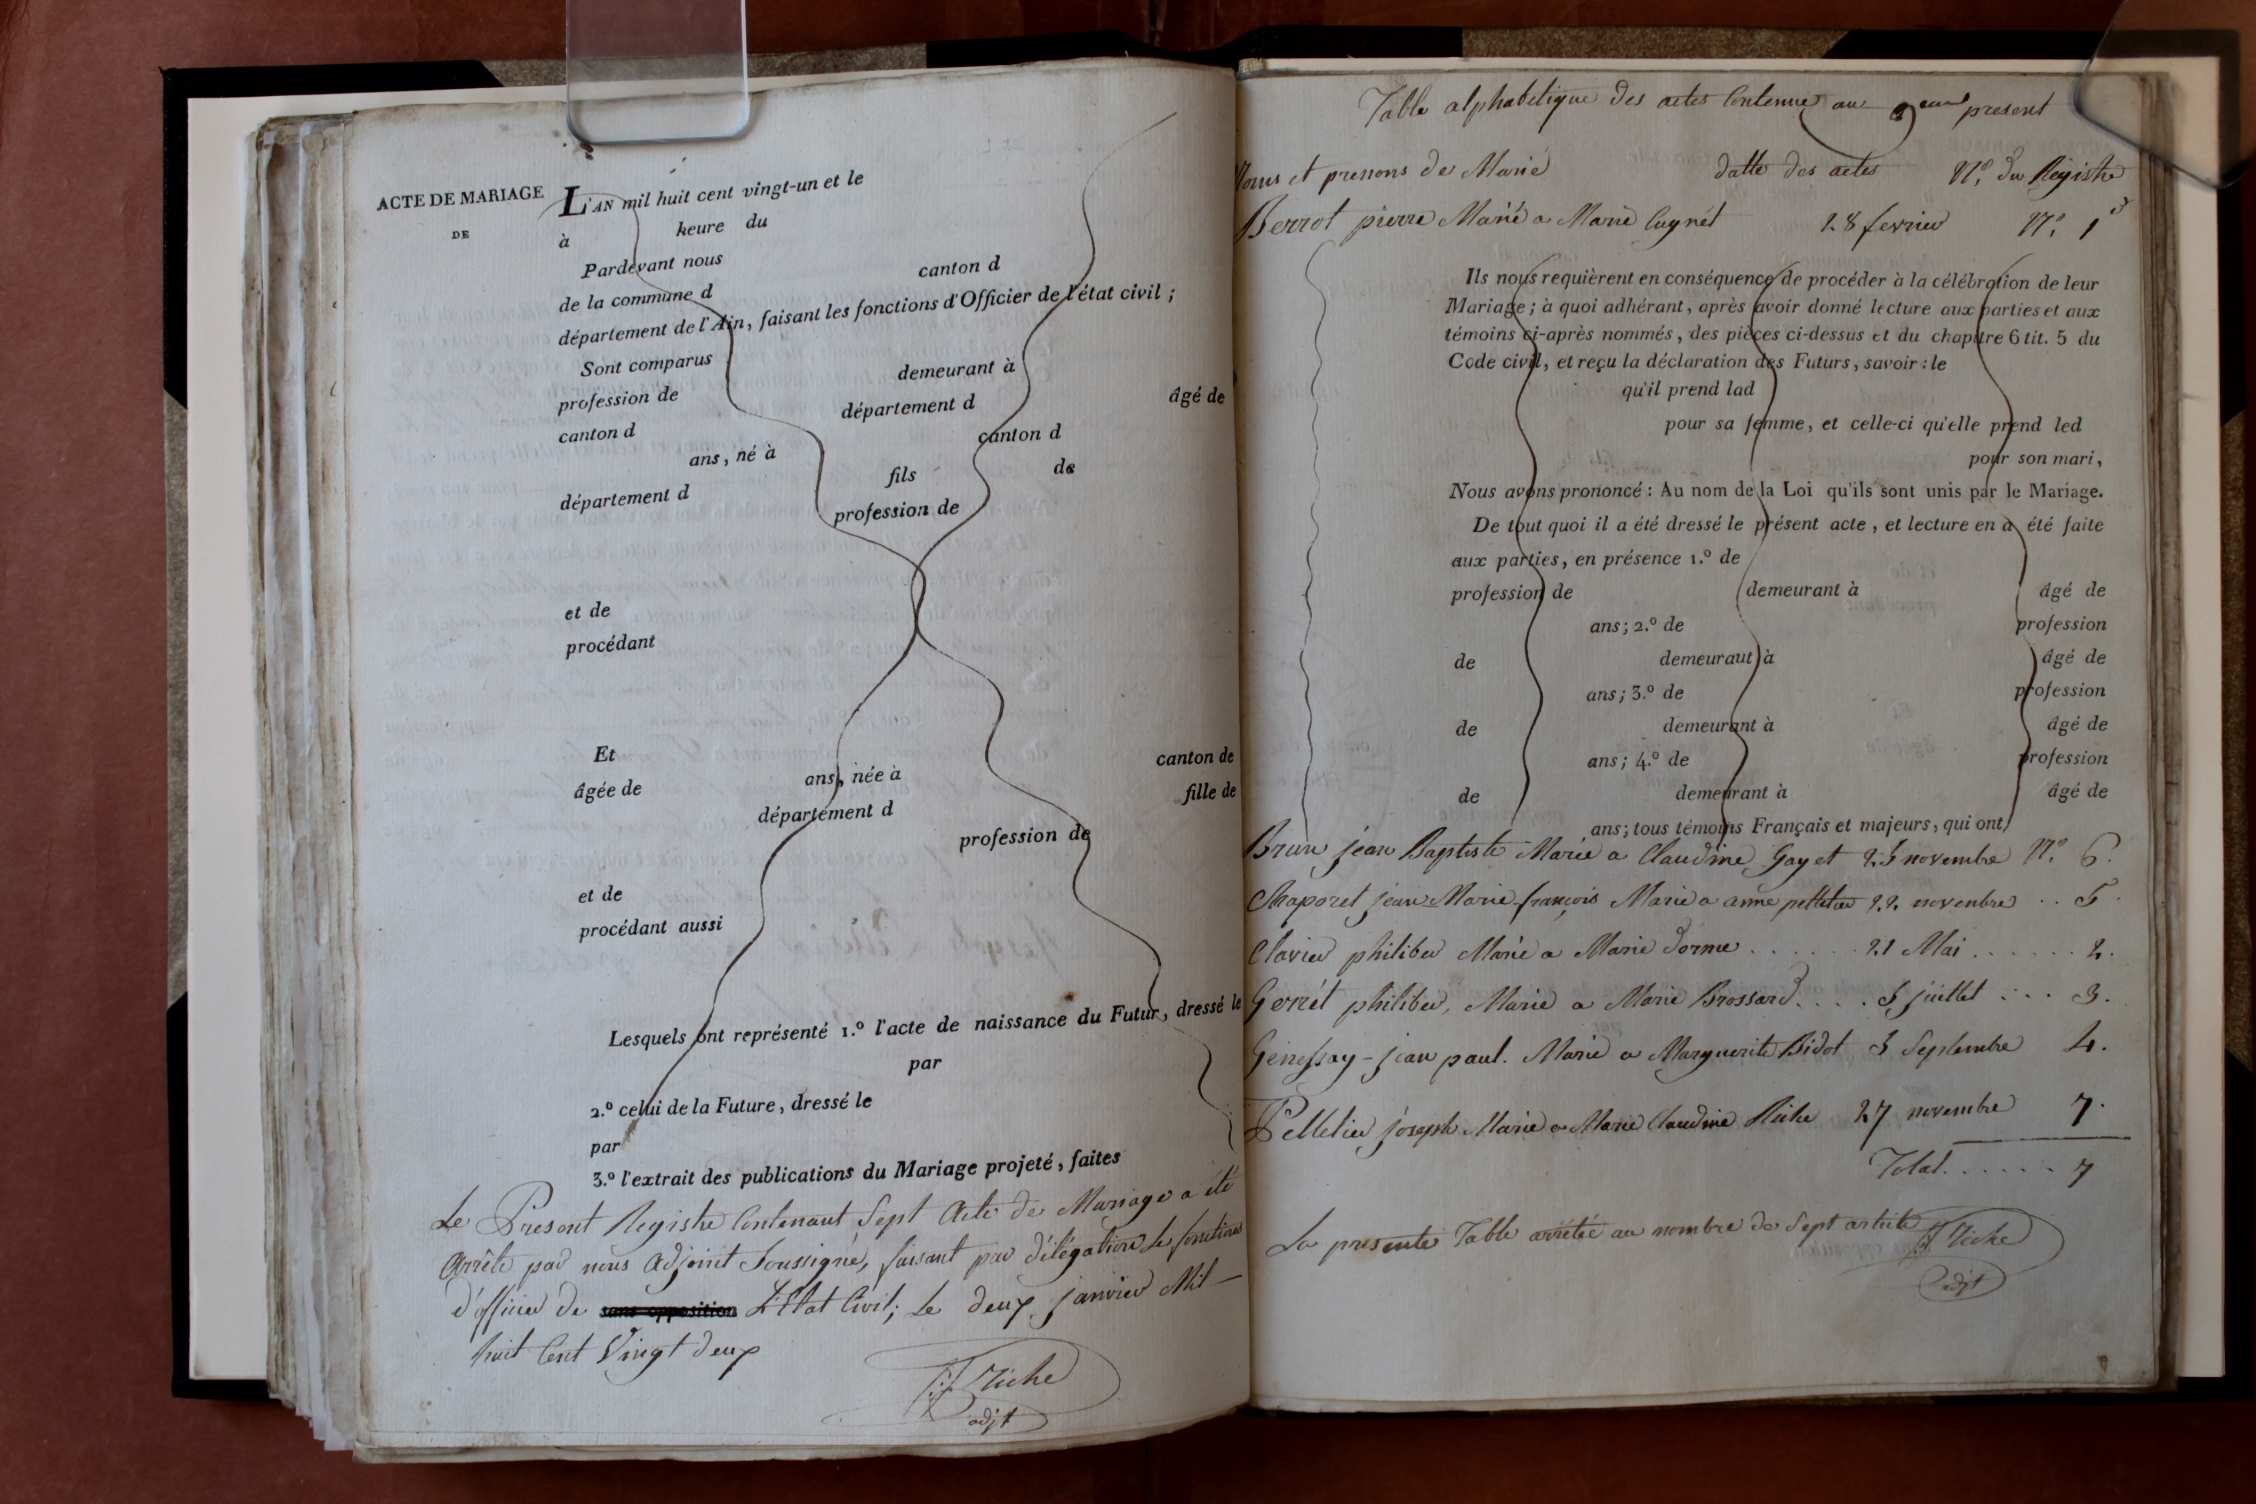 ACTE DE MARIAGE
DE
L'AN mil huit cent vingt-un et le
à heure du
Pardevant nous
de la commune d canton d
département de l'Ain, faisant les fonctions d'Officier de l'état civil ;
Sont comparus
profession de demeurant à
canton d département d âgé de
ans, né à canton d
département d fils de
profession de
et de
procédant
Et
âgée de ans, née à canton de
département d fille de
profession de
et de
procédant aussi
Lesquels ont représenté 1.º l'acte de naissance du Futur, dressé le
par
2.º celui de la Future, dressé le
par
3.º l'extrait des publications du Mariage projeté, faites
Le Present Registre Contenant Sept Acte de Mariage a été
Arrêté par nous Adjoint Soussigné, faisant par délégation le fonctions
d'officier de sans opposition L'Etat Civil; Le deux janvier Mil
huit Cent Vingt deux
Riche
adjt
Table alphabetique des actes Contenue au present
Noms et prenons de Marié datte des actes Nº. du Régistre
Berrot pierre Marié a Marie Cugnét 28 fevrier Nº. 1
Ils nous requièrent en conséquence de procéder à la célébration de leur
Mariage ; à quoi adhérant, après avoir donné lecture aux parties et aux
témoins ci-après nommés, des pièces ci-dessus et du chapitre 6 tit. 5 du
Code civil, et reçu la déclaration des Futurs, savoir : le
qu'il prend lad
pour sa femme, et celle-ci qu'elle prend led
pour son mari,
Nous avons prononcé : Au nom de la Loi qu'ils sont unis par le Mariage.
De tout quoi il a été dressé le présent acte, et lecture en a été faite
aux parties, en présence 1.º de
profession de demeurant à âgé de
ans ; 2.º de profession
de demeuraut à âgé de
ans ; 3.º de profession
de demeurant à âgé de
ans ; 4.º de profession
de demeurant à âgé de
ans ; tous témoins Français et majeurs, qui ont
Brun jean Baptiste Marié a Claudine Gayet 23 novembre Nº. 6.
Chaporet jean Marie françois Marié a anne pelletier 22 novembre .. 5.
Clavier philiber Marié a Marie Dorme ...... 21 Mai ...... 2.
Gerrét philiber, Marié a Marie Brossard .... 3 juillet .... 3.
Genessay - jean paul. Marié a Marguerite Bidot 3 Septembre 4.
Pelletier joseph Marié a Marie Claudine Riche 27 novembre 7.
Total ...... 7
La presente Table arrêtée au nombre de Sept article
Riche
adjt